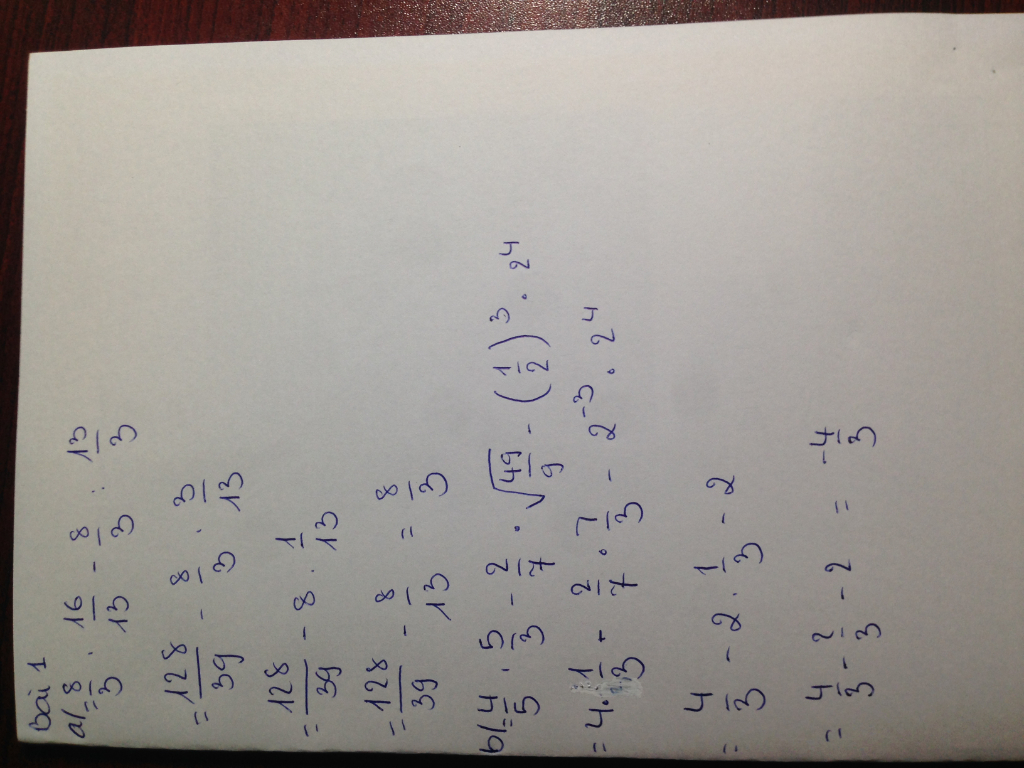 bài 1
a/ = 8/3 . 16/13 - 8/3 : 13/3
= 128/39 - 8/3 . 3/13
= 128/39 - 8 . 1/13
= 128/39 - 8/13 = 8/3
b/ = 4/5 . 5/3 - 2/7 . √(49/9) - (1/2)³ . 2⁴
= 4 . 1/3 - 2/7 . 7/3 - 2⁻³ . 2⁴
= 4/3 - 2 . 1/3 - 2
= 4/3 - 2/3 - 2 = -4/3